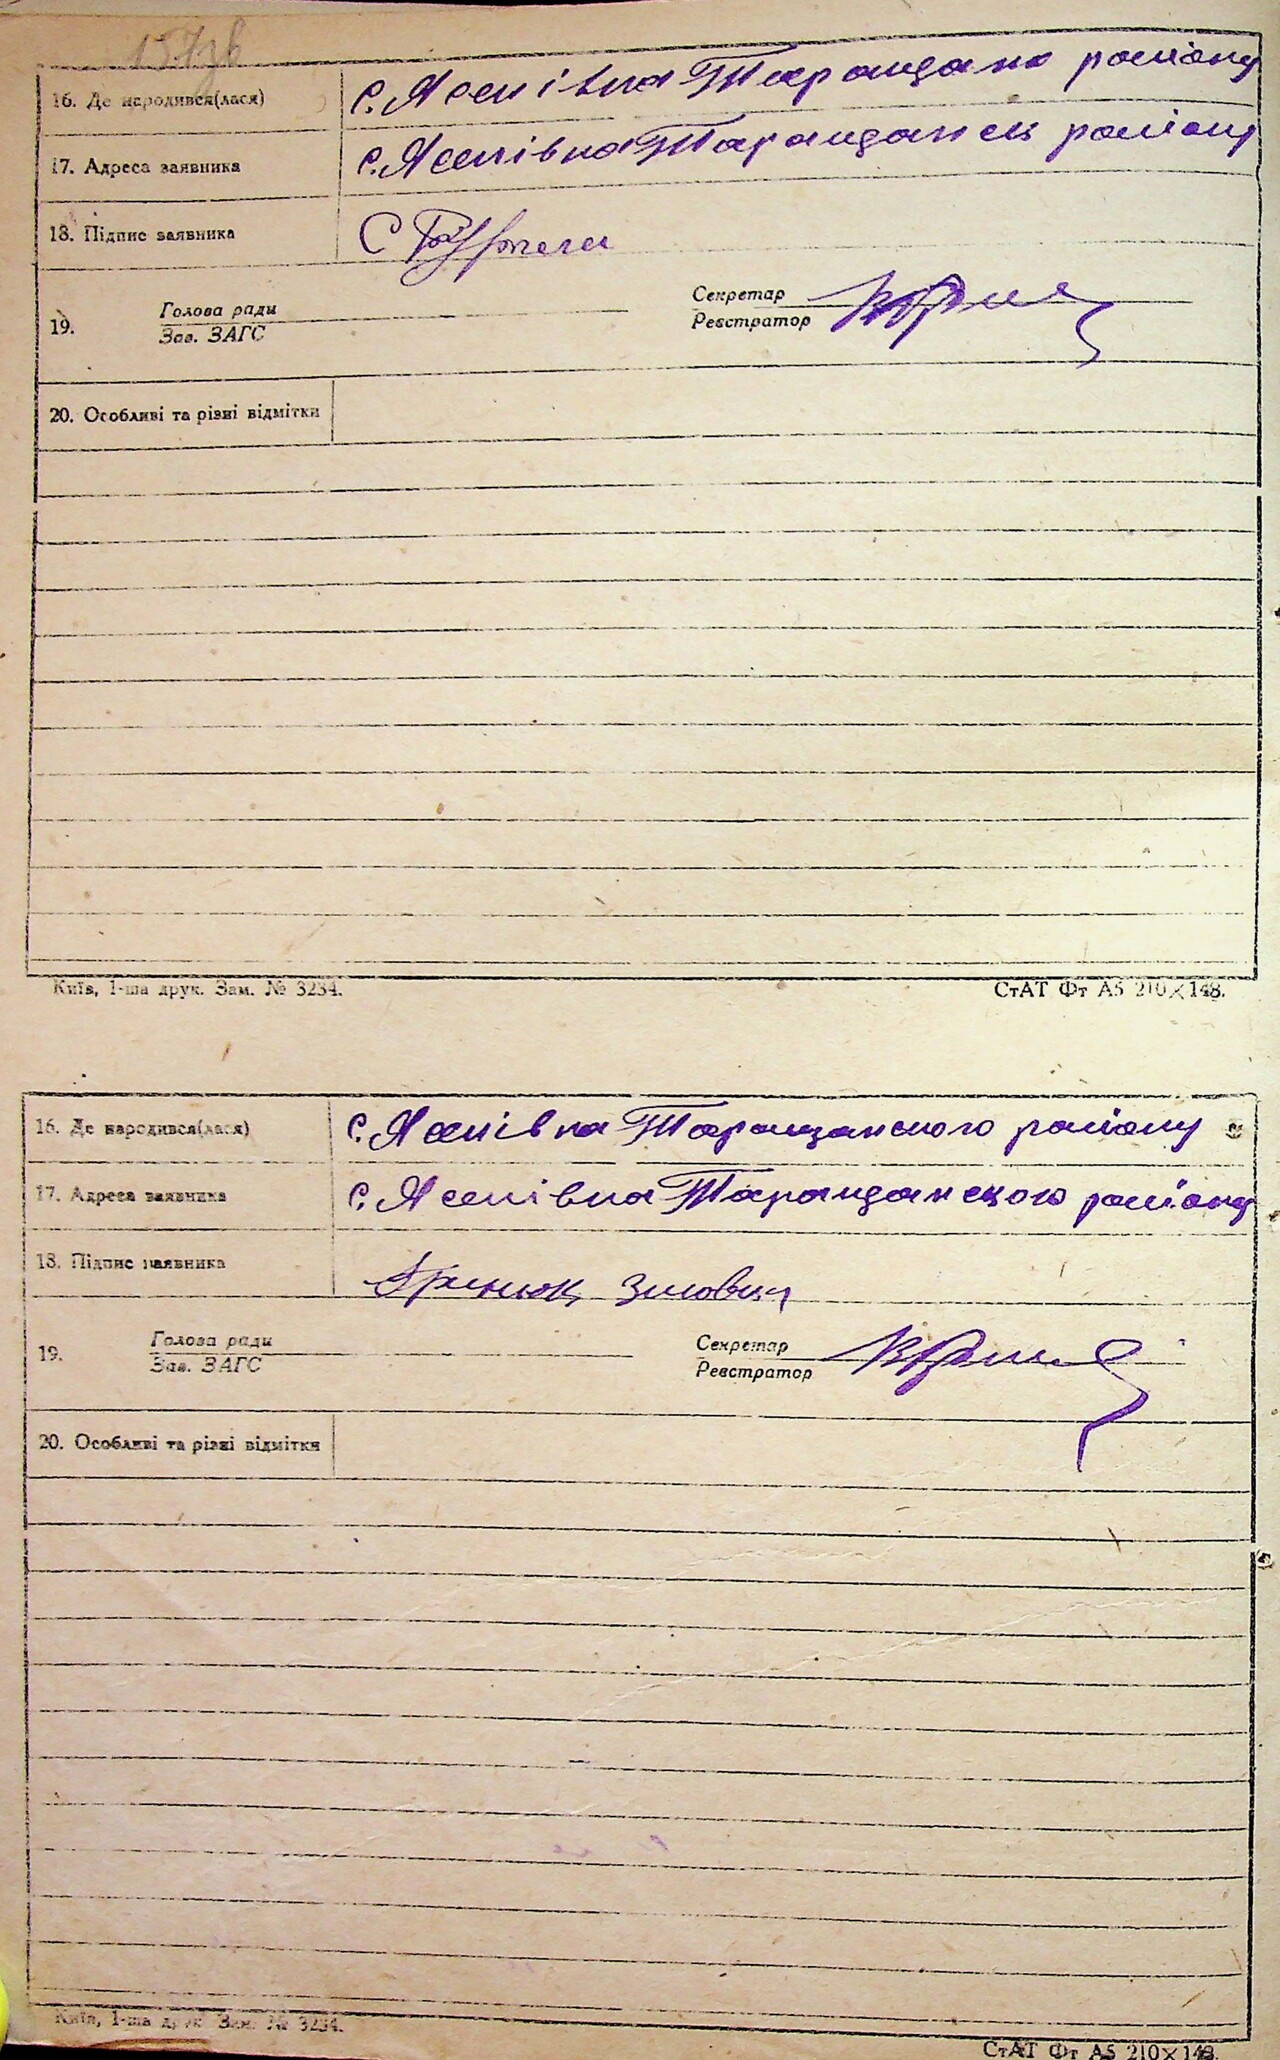 157зв
16. Де народився(лася) с. Ясенівка Таращано району
17. Адреса заявника с. Ясенівка Таращанськ району
18. Підпис заявника С
19. Голова ради Секретар
Зав. ЗАГС Реєстратор
20. Особливі та різні відмітки
Київ, 1-ша друк. Зам. № 3234. СтАТ Фт А5 210×148.
16. Де народився(лася) с. Ясенівка Таращанського району
17. Адреса заявника с. Ясенівка Таращанського району
18. Підпис заявника
19. Голова ради Секретар
Зав. ЗАГС Реєстратор
20. Особливі та різні відмітки
Київ, 1-ша друк. Зам. № 3234.
СтАТ Фт А5 210×148.